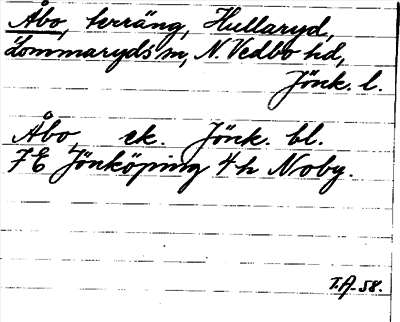 Åbo, terräng, Hullaryd,
Lommaryds sn, N. Vedbo hd,
Jönk. l.
Åbo, ek. Jönk. bl.
7E Jönköping 4h Noby.
T.A-58.